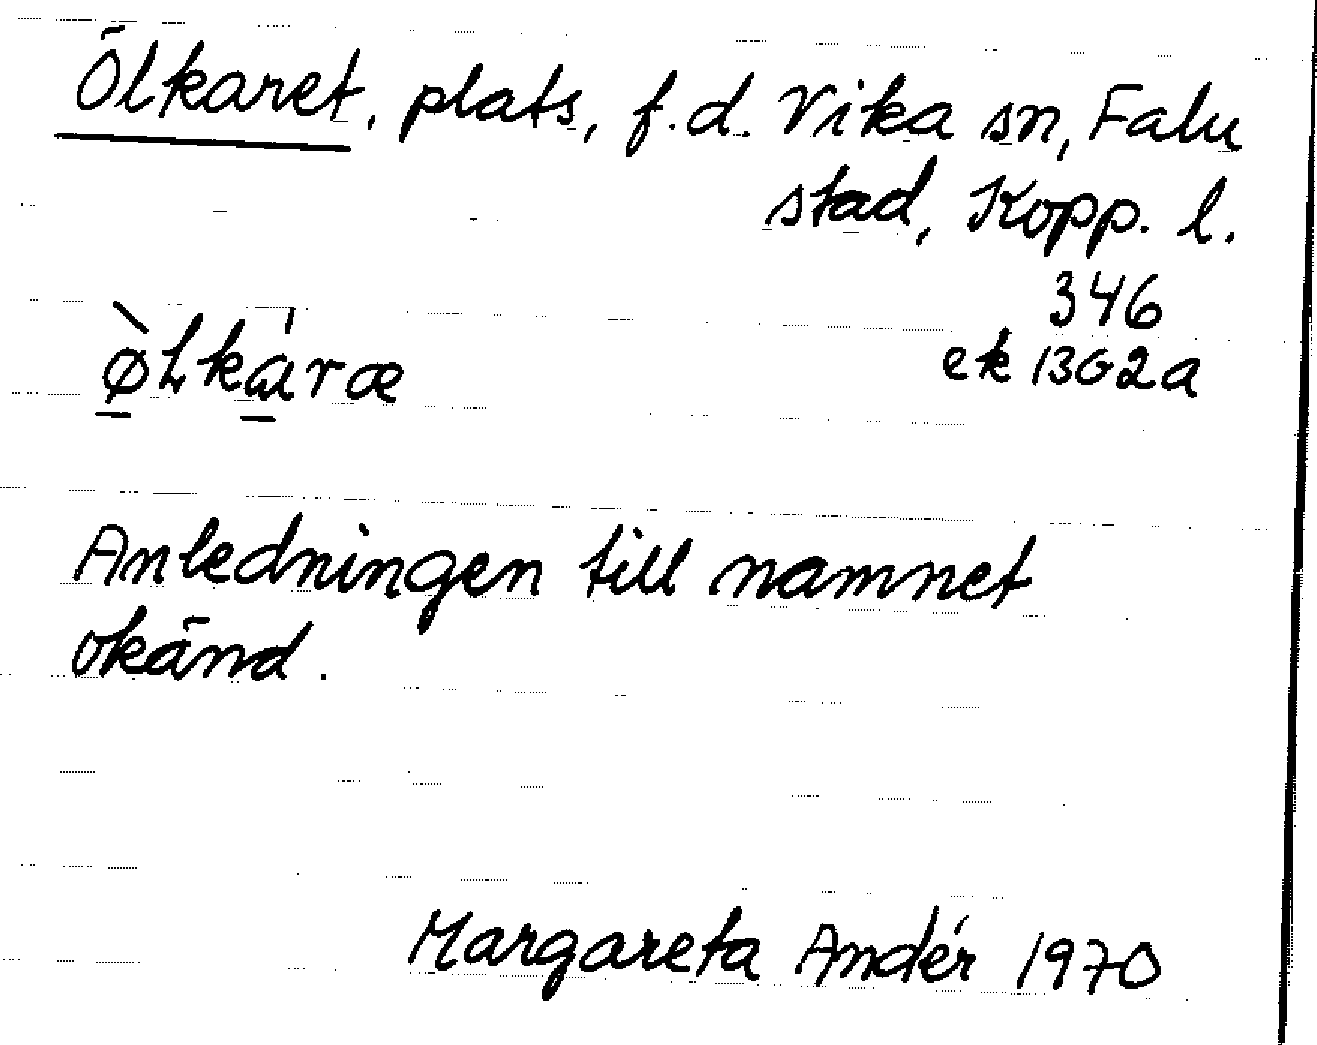 Ölkaret, plats, f.d. Vika sn, Falu
stad, Kopp. l.
346
ek 13G2a
Anledningen till namnet
okänd.
Margareta Andér 1970